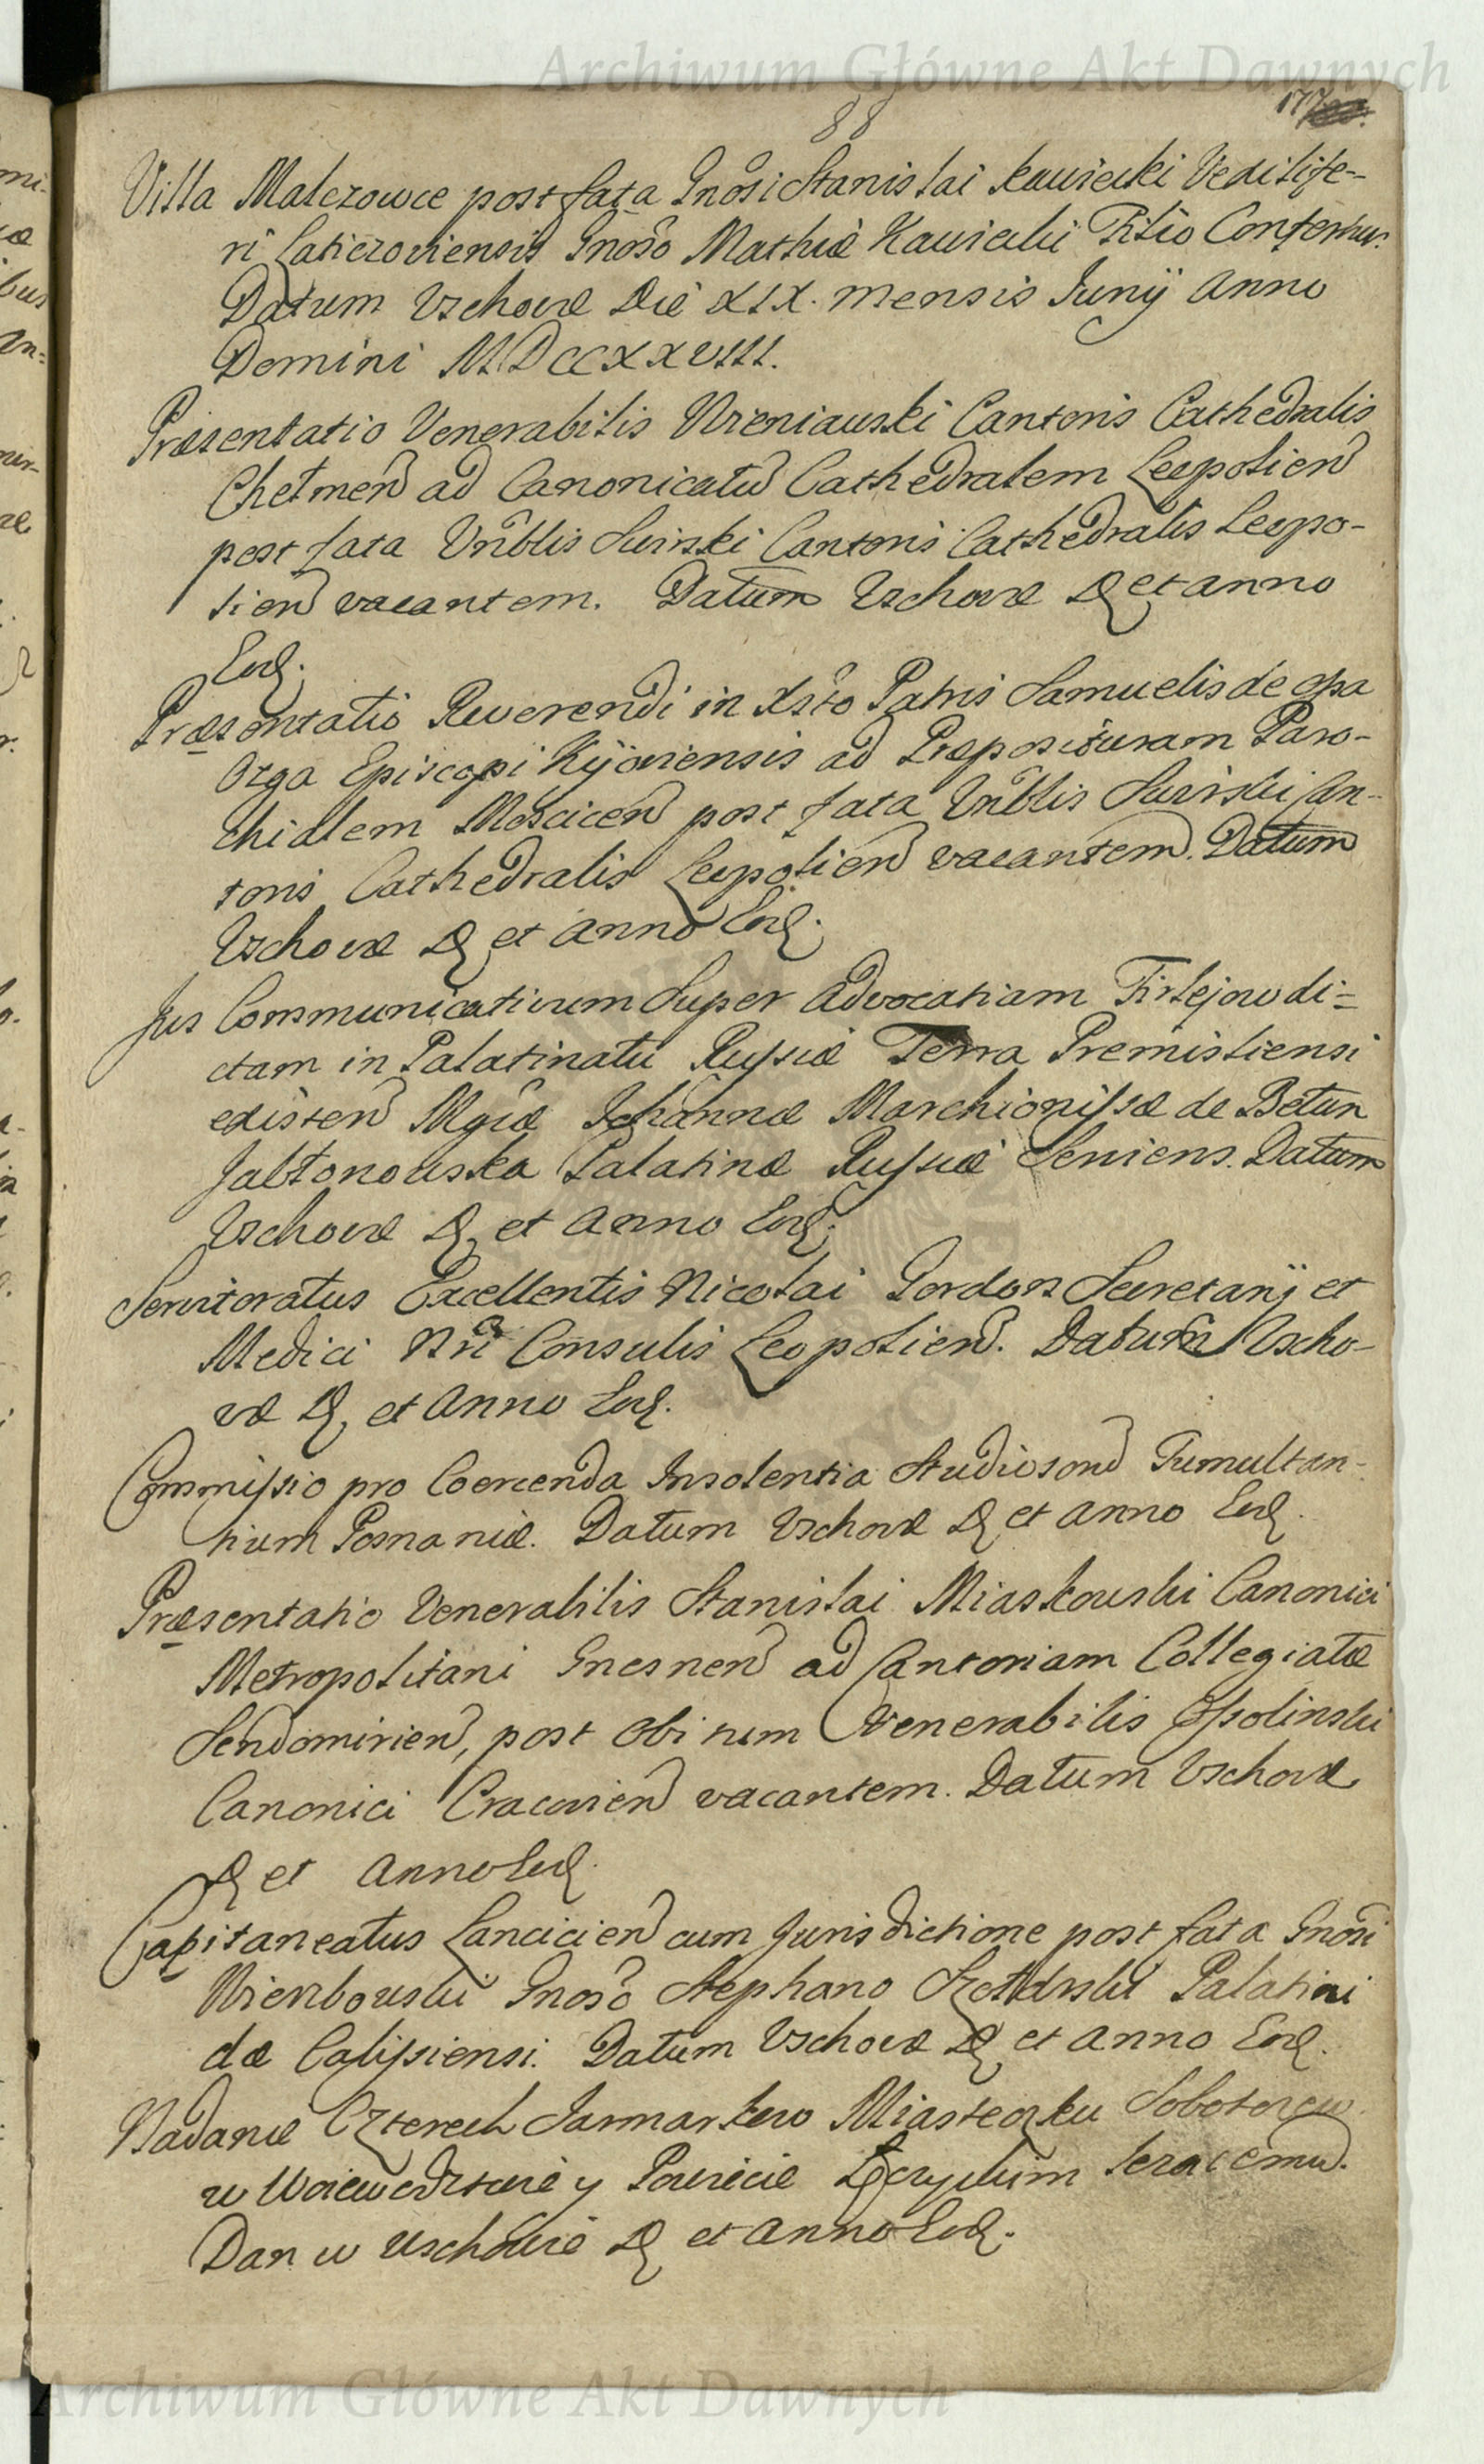 Archiwum Główne Akt Dawnych
88
177
Villa Malczowce post fata Gnosi Stanislai Kawiecki Vexillife-
ri Laticzoviensis Gnoso Mathiæ Kawiecki Filio Confertur.
Datum Vschovæ Die XIX. mensis Junij Anno
Domini MDCCXXVIII.
Præsentatio Venerabilis Wreniawski Cantoris Cathedralis
Chelmen ad Canonicatu Cathedralem Leopolien
post fata Vnblis Suirski Cantoris Cathedralis Leopo-
lien vacantem. Datum Vschovæ D et anno
Eod.
Præsentatio Reverendi in Xsto Patris Samuelis de Ossa
Ozga Episcopi Kijoviensis ad Præposituram Paro-
chialem Moscicen post fata Vnblis Suirski Can-
toris Cathedralis Leopolien vacantem. Datum
Vschovæ D et anno Eod.
Jus Communicativum Super Advocatiam Firlejow di=
ctam in Palatinatu Russiæ Terra Premisliensi
existen Mgcæ Johannæ Marchionissæ de Betun
Jabłonowska Palatinæ Russiæ Serviens. Datum
Vschovæ D et Anno Eod.
Servitoratus Excellentis Nicolai Gordon Secretarij et
Medici Nri Consulis Leopolien. Datum Vscho-
væ D et Anno Eod.
Commissio pro Coercenda Insolentia Studiosorum Tumultan-
tium Posnaniæ. Datum Vschovæ D et anno Eod.
Præsentatio Venerabilis Stanislai Miaskowski Canonici
Metropolitani Gnesnen ad Cantoriam Collegiatæ
Sendomirien, post obitum Venerabilis Ossolinski
Canonici Cracovien vacantem. Datum Vschovæ
D et Anno Eod.
Capitaneatus Lancicien cum Jurisdictione post fata Gnosi
Wierzbowski Gnoso Stephano Szołdrski Palatini
dæ Calissiensi. Datum Vschovæ D et anno Eod.
Nadanie Czterech Jarmarkow Miasteczku
w Woiewodztwie y Powiecie
Dan w Uschowie D et anno Eod.
Archiwum Główne Akt Dawnych